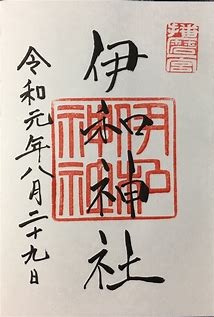 伊和神社
伊和
神社
令和元年八月二十九日